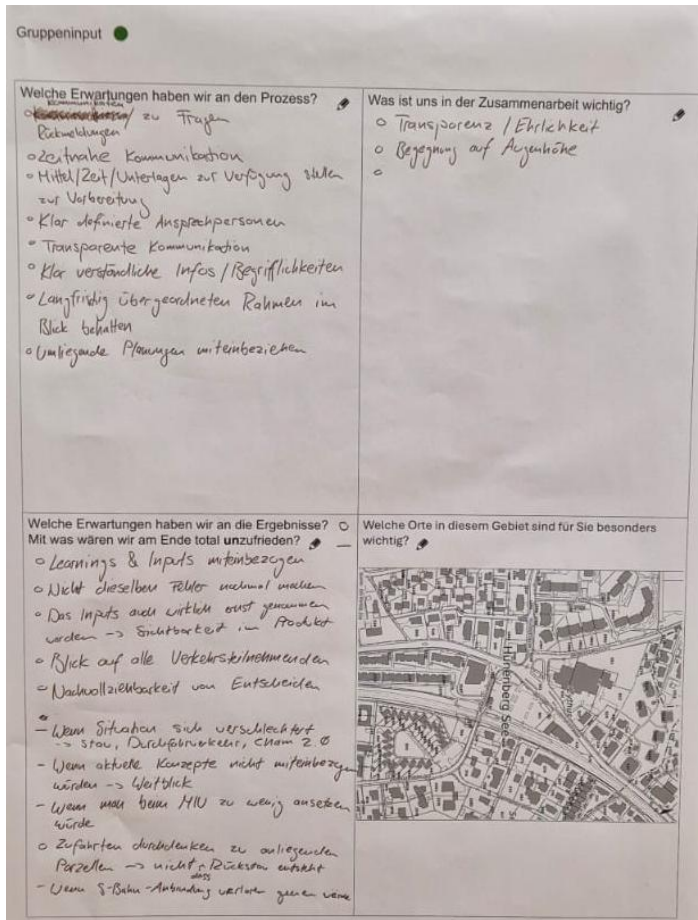 Gruppeninput
Welche Erwartungen haben wir an den Prozess?
Kommunikation
zu Fragen
Rückmeldungen
Zeitnahe Kommunikation
Mittel/Zeit/Unterlagen zur Verfügung stellen
zur Vorbereitung
Klar definierte Ansprechpersonen
Transparente Kommunikation
Klar verständliche Infos / Begrifflichkeiten
Langfristig übergeordneten Rahmen im
Blick behalten
Umliegende Planungen miteinbeziehen
Was ist uns in der Zusammenarbeit wichtig?
Transparenz / Ehrlichkeit
Begegnung auf Augenhöhe
Welche Erwartungen haben wir an die Ergebnisse?
Mit was wären wir am Ende total unzufrieden?
Learnings & Inputs miteinbezogen
Nicht dieselben Fehler nochmal machen
Das Inputs auch wirklich ernst genommen
werden -> Sichtbarkeit im Produkt
Blick auf alle Verkehrsteilnehmenden
Nachvollziehbarkeit von Entscheiden
- Wenn Situation sich verschlechtert
-> Stau, Durchfahrverkehr, Cham 2.0
- Wenn aktuelle Konzepte nicht miteinbezogen
würden -> Weitblick
- Wenn man beim MIV zu wenig ansetzen
würde
Zufahrten durchdenken zu anliegenden
Parzellen -> nicht dass Rückstau entsteht
- Wenn S-Bahn-Anbindung verloren gehen
Welche Orte in diesem Gebiet sind für Sie besonders
wichtig?
Hünenberg See